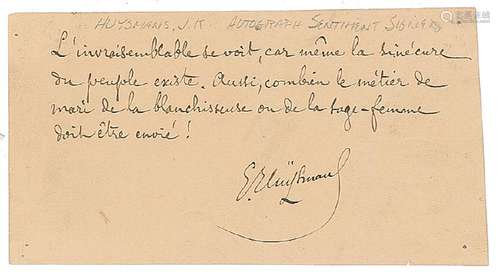 HUYSMANS, J.K. AUTOGRAPH SENTIMENT SIGNED
L'invraisemblable se voit, car même la sinécure
du peuple existe. Aussi, combien le métier de
mari de la blanchisseuse ou de la sage-femme
doit être envié!
G Huysmans